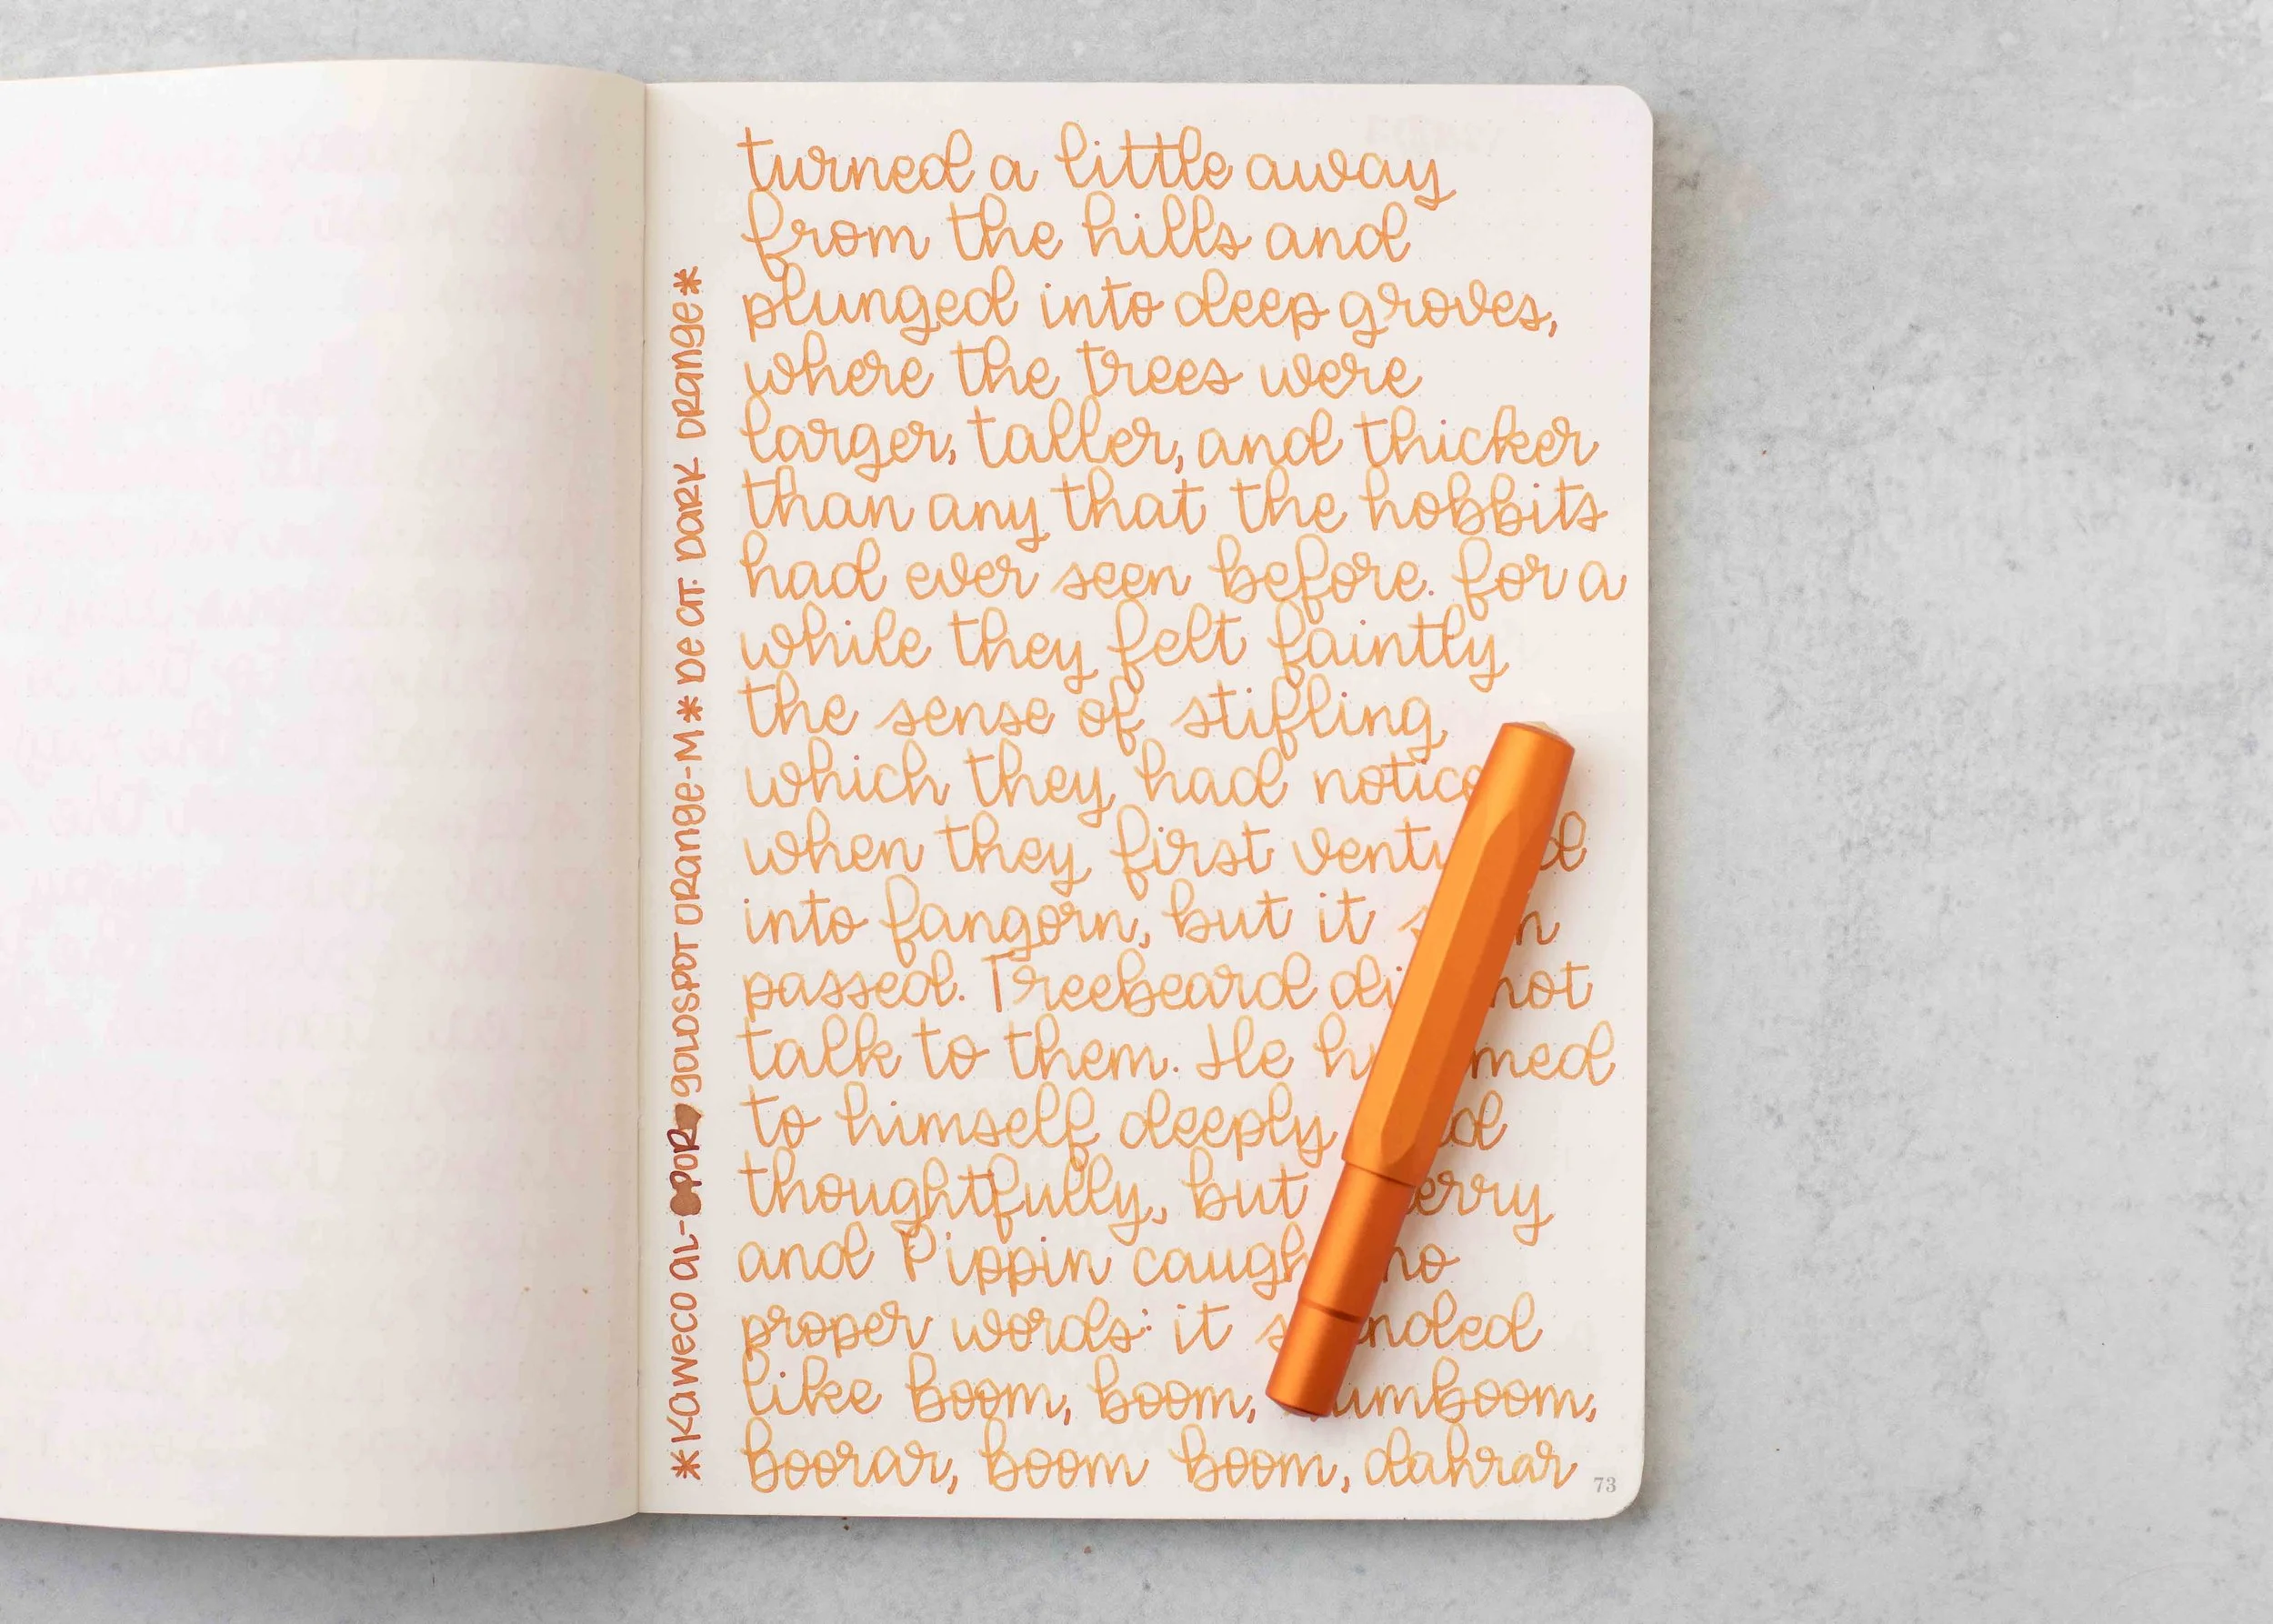 turned a little away
from the hills and
plunged into deep groves,
where the trees were
larger, taller, and thicker
than any that the hobbits
had ever seen before. for a
while they felt faintly
the sense of stifling
which they had
when they first
into fangorn, but it
passed. Treebeard not
talk to them. He
to himself deeply
thoughtfully, but
and Pippin no
proper words: it
like boom, boom,
boorar, boom boom, dahrar
73
*Kaweco AL- POR goldspot Orange-M* De Atr. Dark Orange*